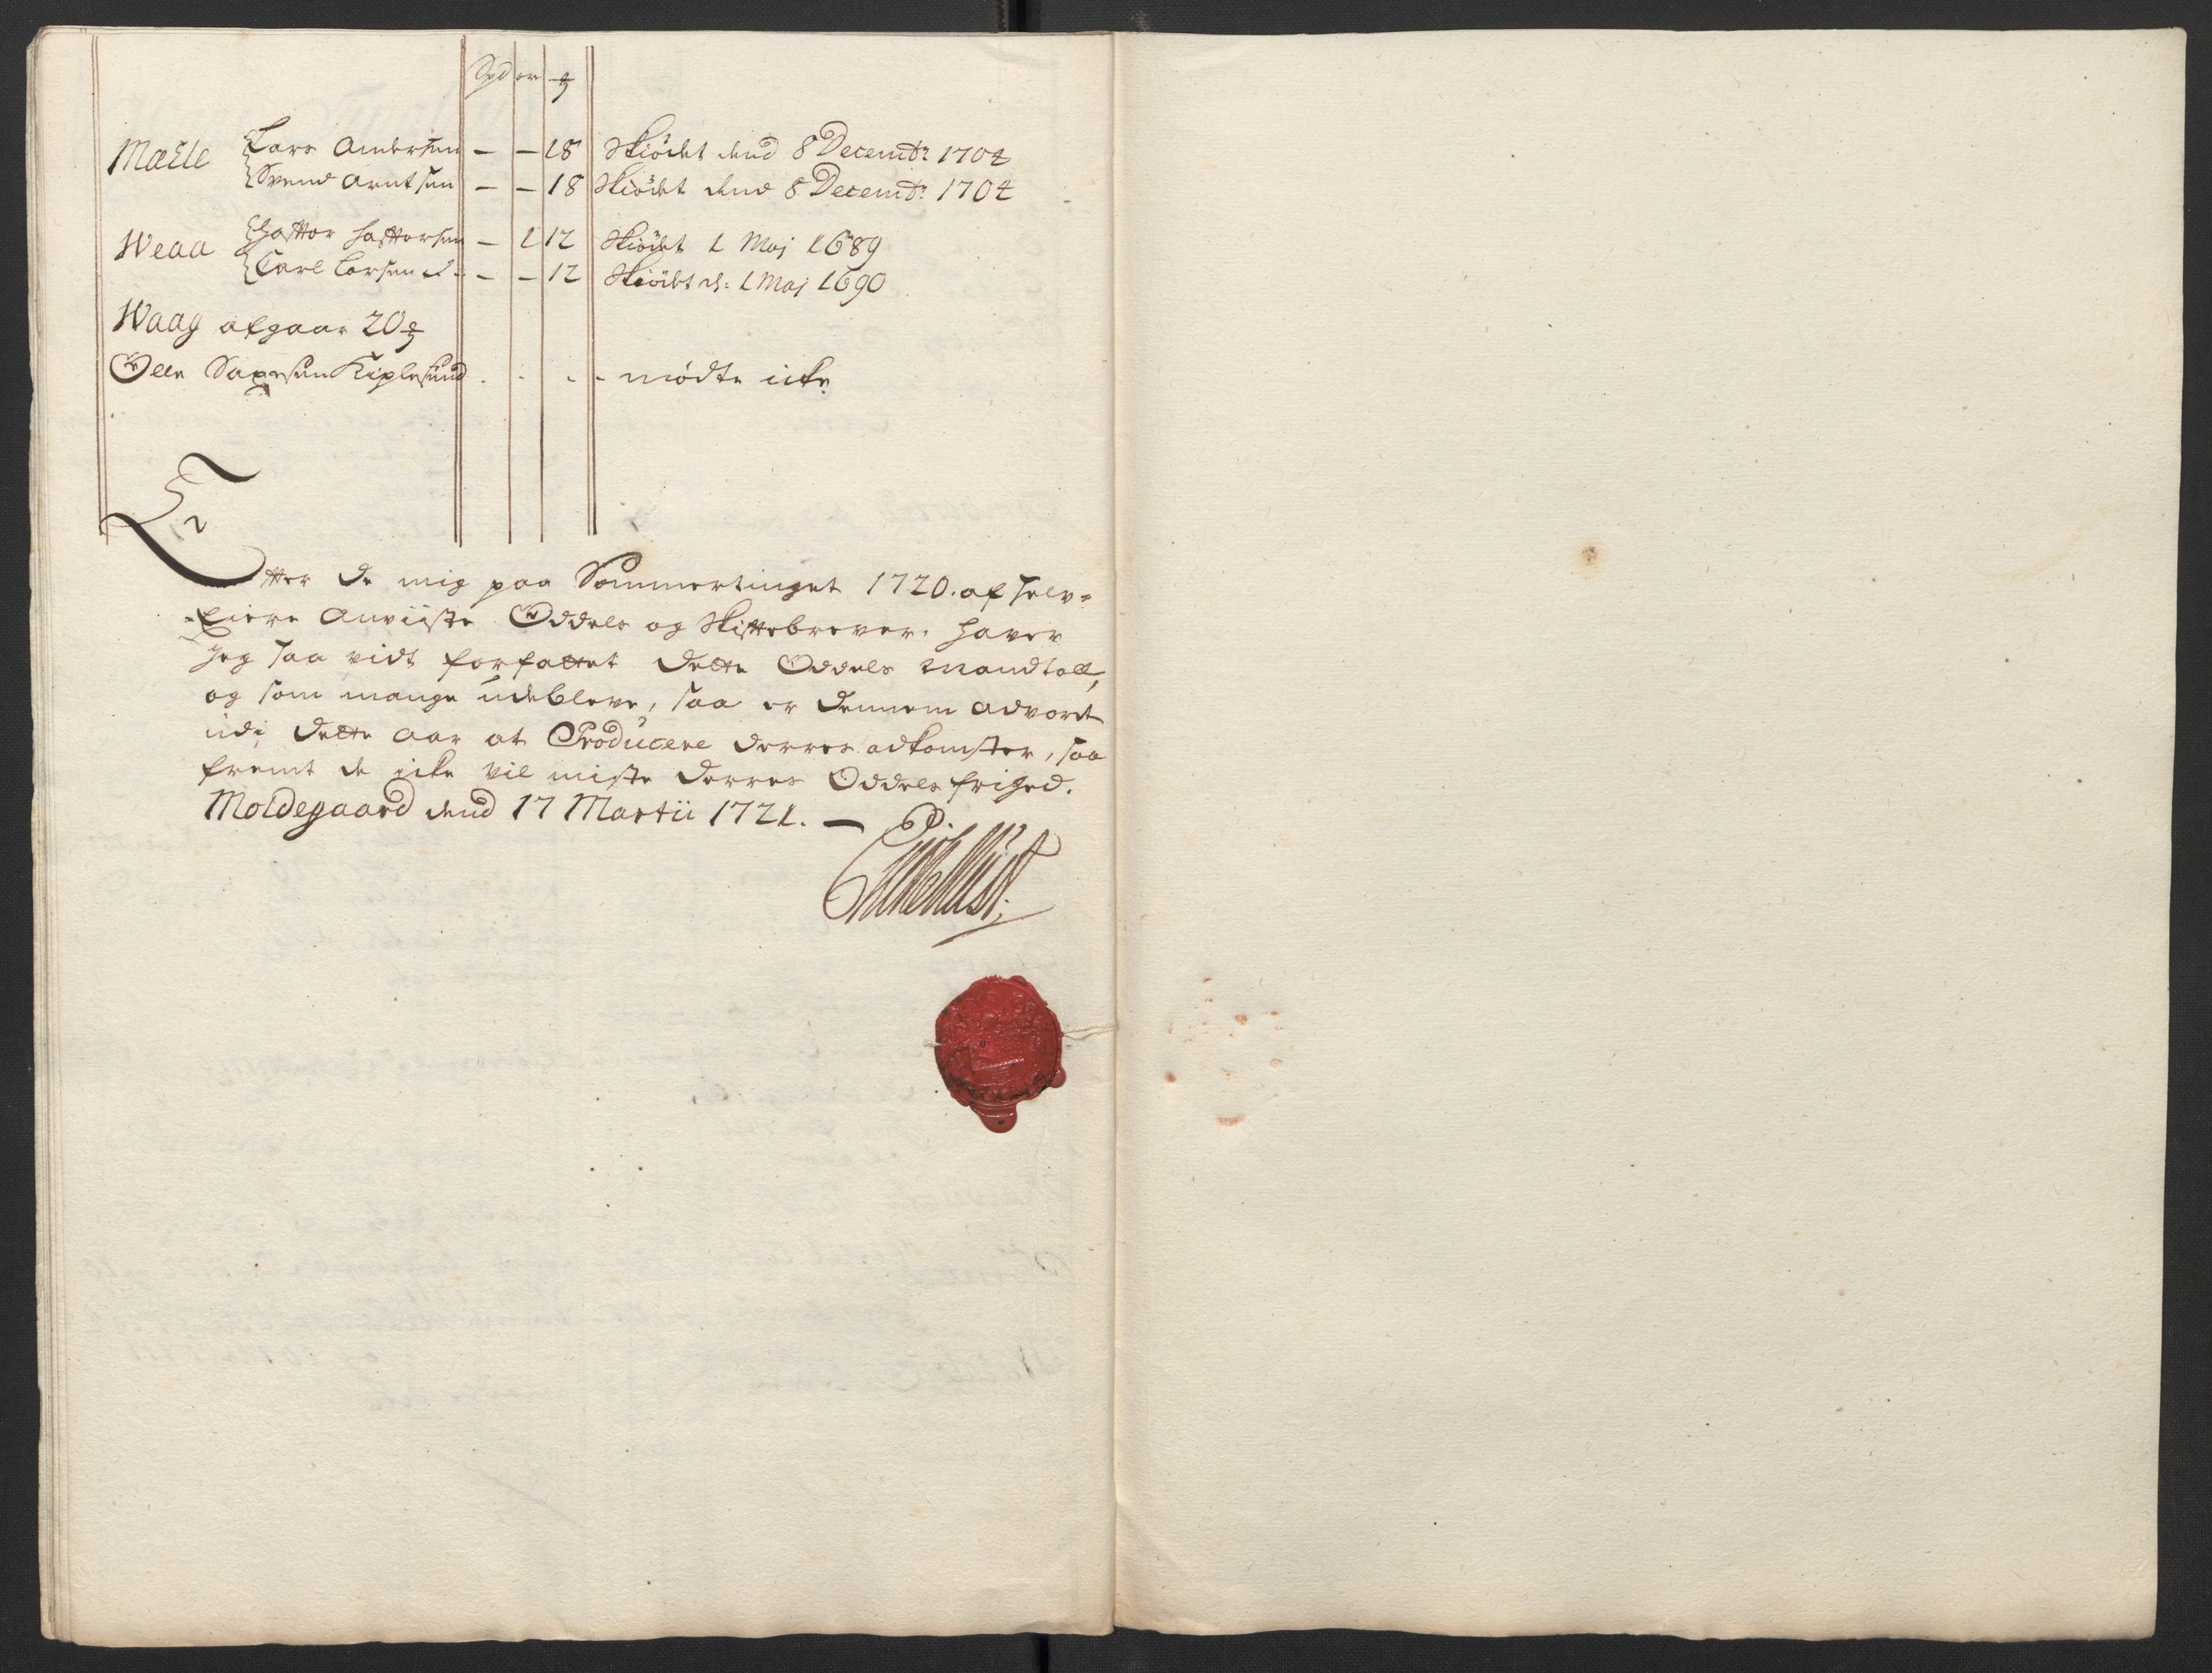 Spd or ꝶ
Mæele Lars Andersen — — 18 Skiødet dend 8 Decembr: 1704
Svend Arntsen — — 18 Skiødet dend 8 Decembr: 1704
Weaa Hastor Hastorsen — 1 12 Skiødet 1 Maj 1689
Carl Larsen — — 12 Skiødet d: 1 Maj 1690
Waag afgaar 20 ꝶ
Olle Saxesen Kiplesund . . . - mødte icke
Efter de mig paa Sommertinget 1720. af Selv-
Eiere Anviiste Oddels og Skiftebrever. Haver
Jeg saa vidt forfattet dette Oddels Mandtall,
og som mange udebleve, saa er dennem advaret
udi dette Aar at Producere derres adkomster, saa
fremt de icke vil miste derres Oddels friged.
Moldegaard dend 17 Martii 1721. —